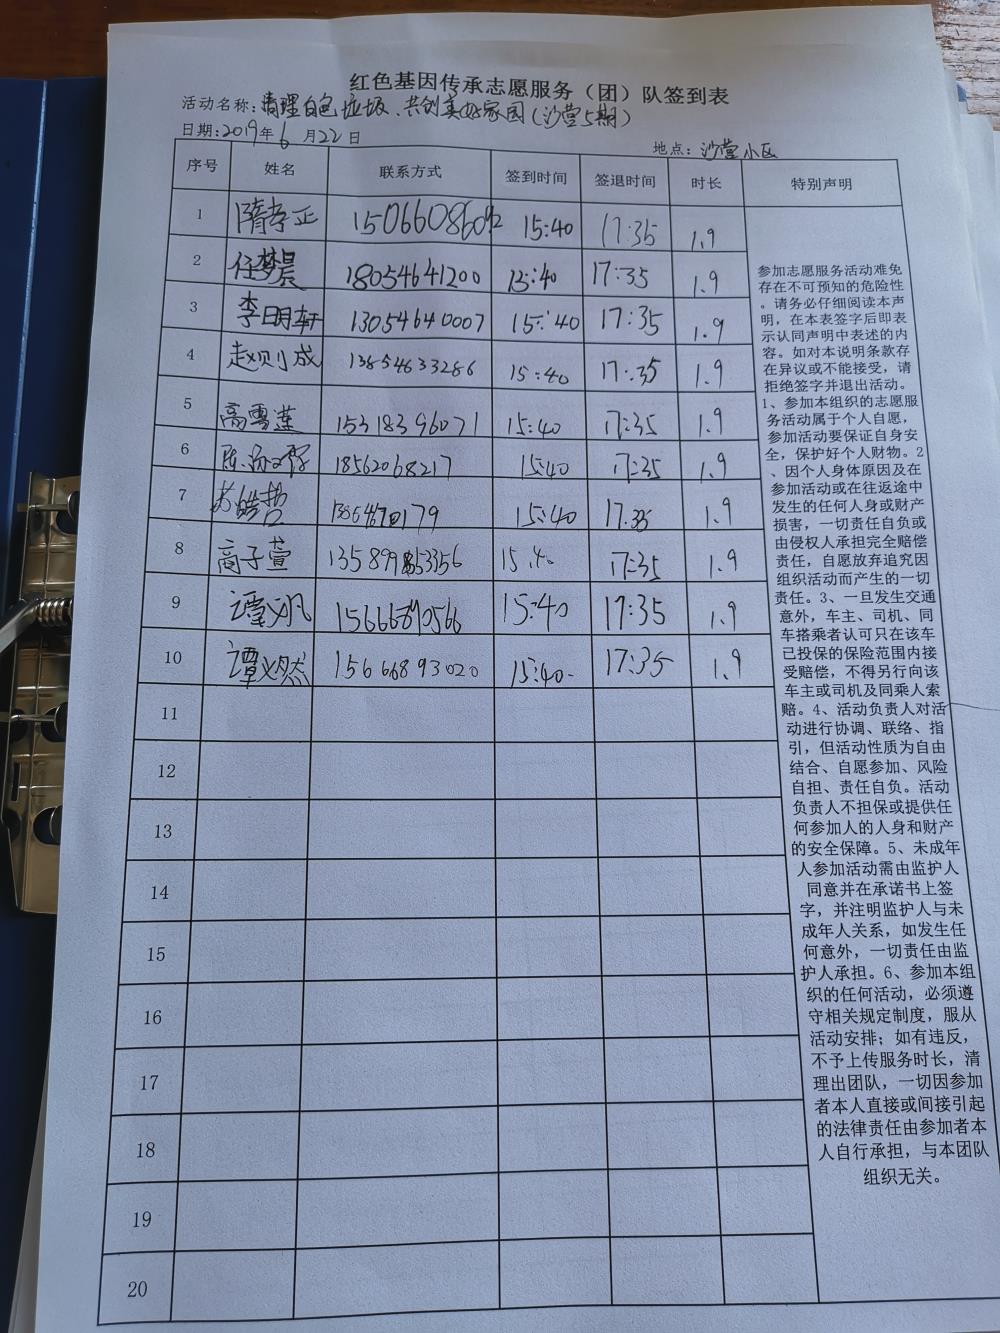 红色基因传承志愿服务（团）队签到表
活动名称：清理白色垃圾、共创美好家园（沙营5期）
日期：2019年6月22日
地点：沙营小区
序号 姓名 联系方式 签到时间 签退时间 时长 特别声明
1 隋孝正 15066086092 15:40 17:35 1.9
2 任梦晨 18054641200 15:40 17:35 1.9
3 李明轩 13054640007 15:40 17:35 1.9
4 赵则成 13854633286 15:40 17:35 1.9
5 高雪莲 15318396071 15:40 17:35 1.9
6 18562068217 15:40 17:35 1.9
7 苏皓哲 15:40 17:35 1.9
8 商子萱 15:40 17:35 1.9
9 谭义凡 15:40 17:35 1.9
10 谭义然 15666893020 15:40 17:35 1.9
11
12
13
14
15
16
17
18
19
20
参加志愿服务活动难免
存在不可预知的危险性
。请务必仔细阅读本声
明，在本表签字后即表
示认同声明中表述的内
容。如对本说明条款存
在异议或不能接受，请
拒绝签字并退出活动。
1、参加本组织的志愿服
务活动属于个人自愿，
参加活动要保证自身安
全，保护好个人财物。2
、因个人身体原因及在
参加活动或在往返途中
发生的任何人身或财产
损害，一切责任自负或
由侵权人承担完全赔偿
责任，自愿放弃追究因
组织活动而产生的一切
责任。3、一旦发生交通
意外，车主、司机、同
车搭乘者认可只在该车
已投保的保险范围内接
受赔偿，不得另行向该
车主或司机及同乘人索
赔。4、活动负责人对活
动进行协调、联络、指
引，但活动性质为自由
结合、自愿参加、风险
自担、责任自负。活动
负责人不担保或提供任
何参加人的人身和财产
的安全保障。5、未成年
人参加活动需由监护人
同意并在承诺书上签
字，并注明监护人与未
成年人关系，如发生任
何意外，一切责任由监
护人承担。6、参加本组
织的任何活动，必须遵
守相关规定制度，服从
活动安排；如有违反，
不予上传服务时长，清
理出团队，一切因参加
者本人直接或间接引起
的法律责任由参加者本
人自行承担，与本团队
组织无关。